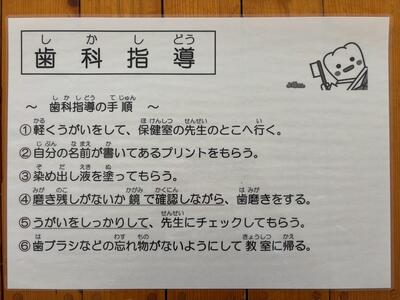 歯科指導
～ 歯科指導の手順 ～
①軽くうがいをして、保健室の先生のとこへ行く。
②自分の名前が書いてあるプリントをもらう。
③染め出し液を塗ってもらう。
④磨き残しがないか鏡で確認しながら、歯磨きをする。
⑤うがいをしっかりして、先生にチェックしてもらう。
⑥歯ブラシなどの忘れ物がないようにして教室に帰る。